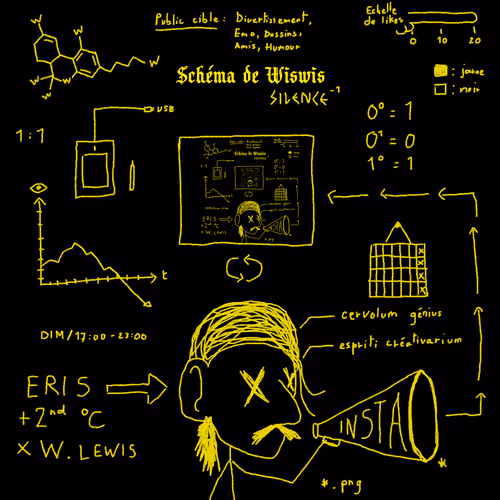 Public cible : Divertissement,
Emo, Dessins,
Amis, Humour
Echelle
de likes
0 10 20
W
W
W
W
W
Schéma de Wiswis
SILENCE⁻¹
: jaune
: noir
USB
1:1
0⁰ = 1
0¹ = 0
1⁰ = 1
t
X
X
X
X
DIM/17:00-23:00
cervolum génius
espriti créativarium
ERIS
+2ⁿᵈ °C
x W. LEWIS
INSTA
*
*.png